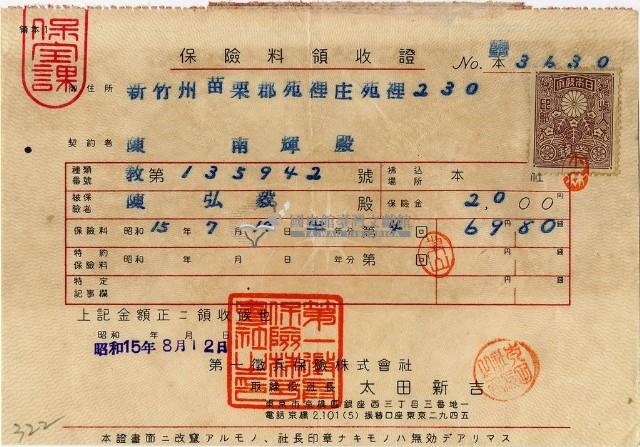 領本1
保全課
保險料領收證
No. 本 3630
御住所 新竹州苗栗郡苑裡庄苑裡230
契約者 陳 南輝 殿
種類番號 教 第 135942 號 拂込場所 本 社
被保險者 陳 弘毅 殿 保險金 2,000円
保險料 昭和 15 年 7 月 年分 第 4 回 69円80錢
特約保險料 昭和 年 月 年分 第 回 円 錢
特定記事欄
上記金額正ニ領收候也
昭和 年 月 日
昭和15年8月12日
第一徵兵保險株式會社
取締役社長 太田新吉
東京市京橋區銀座西三丁目三番地一
電話京橋2,101(5) 振替口座東京二九四五
本證書面ニ改竄アルモノ、社長印章ナキモノハ無効デアリマス
322